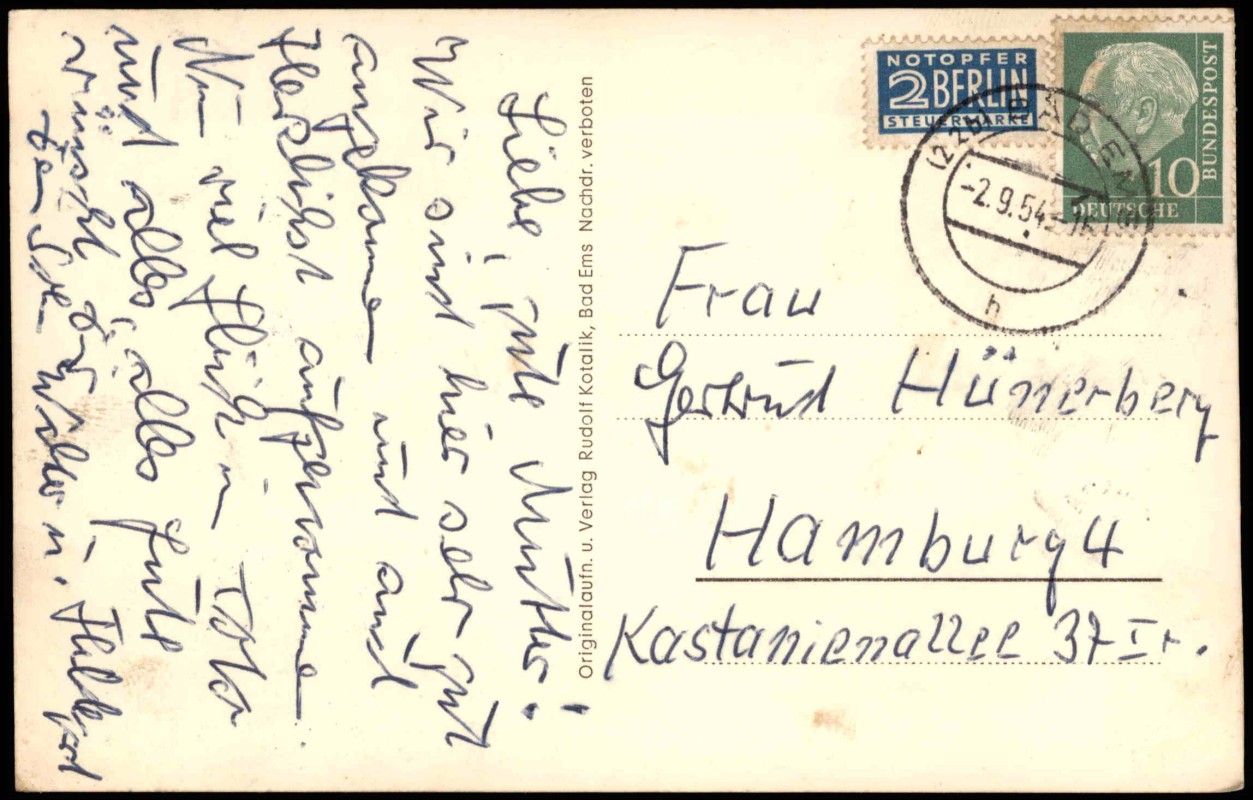 Liebe, gute Mutter!
Wir sind hier sehr gut
angekommen und aufs
Herzlichst aufgenommen
Nun viel Glück in Toto
und alles, alles Gute
wünscht Dir
Dein Sohn Walter u.
Originalaufn. u. Verlag Rudolf Kotalik, Bad Ems Nachdr. verboten
NOTOPFER
2 BERLIN
STEUERMARKE
10
BUNDESPOST
DEUTSCHE
(22b) BAD EMS
-2.9.54-16
h
Frau
Gertrud Hünerberg
Hamburg 4
Kastanienallee 37 I r.